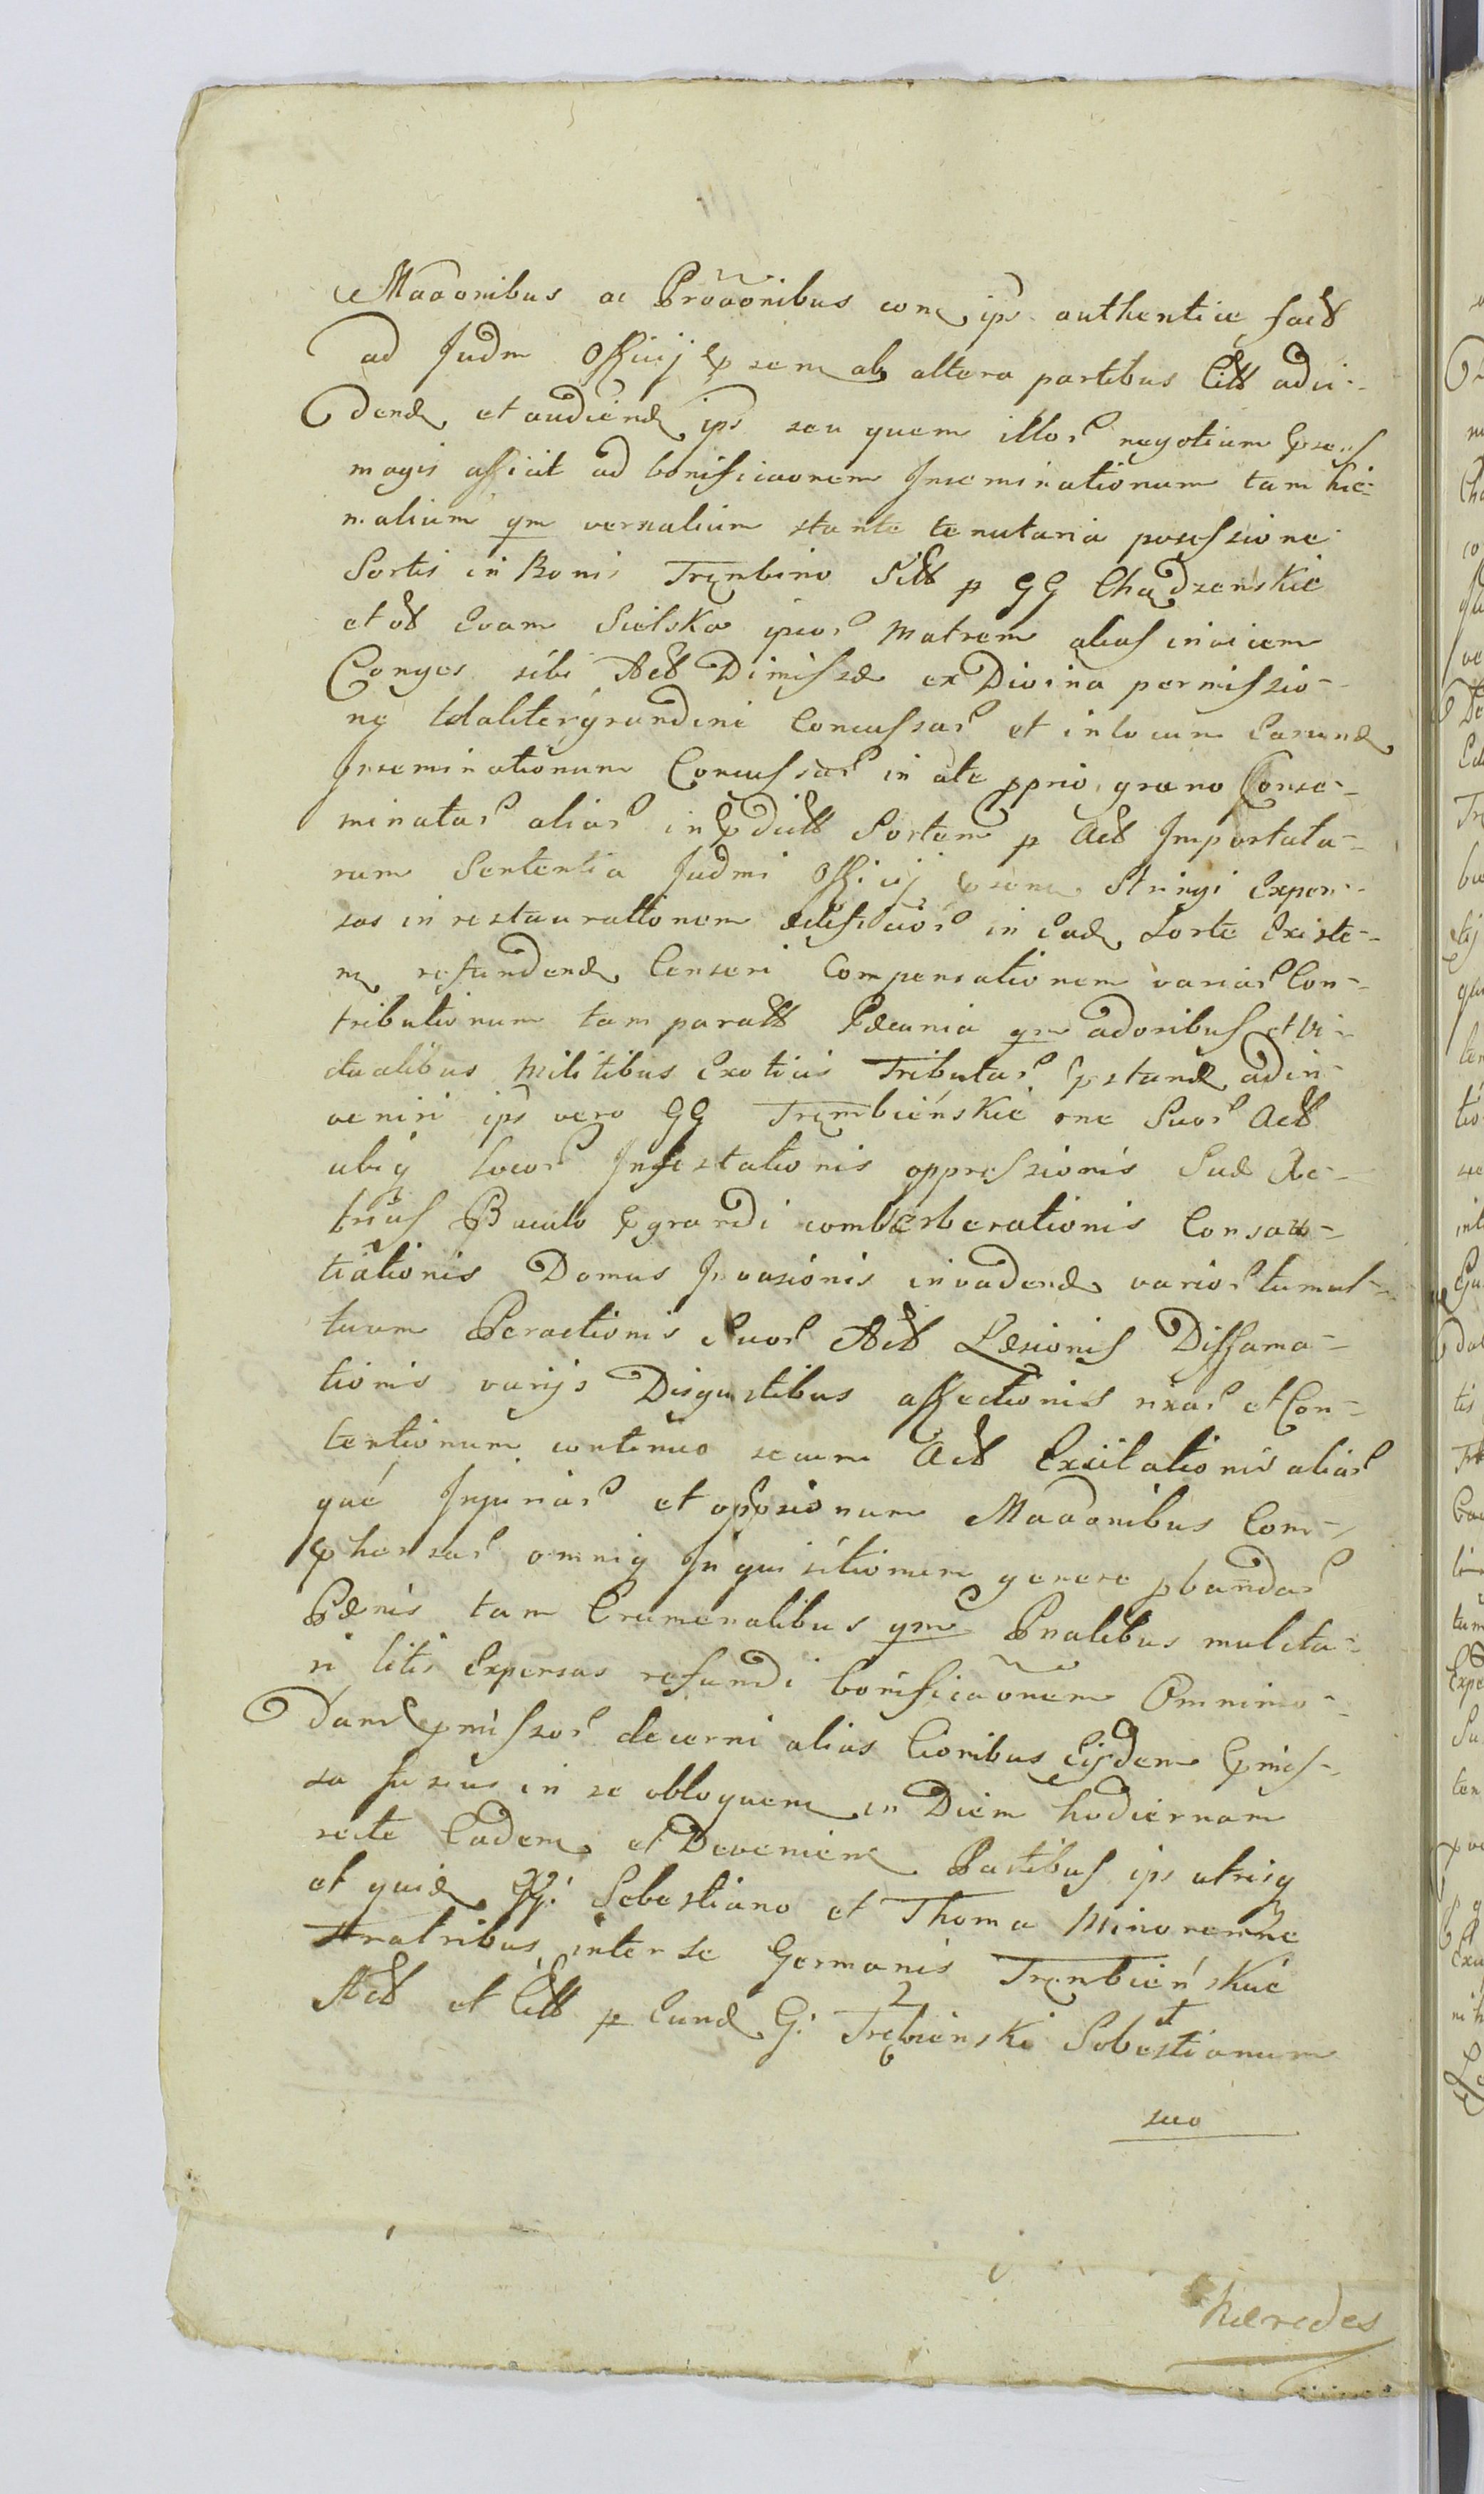 Maaonibus ac Proaonibus con ips authentice fact
ad Judm Officij psen ab altera partibus Citt adci-
dend et audiend ips seu quem illor negotium psens
magis afficit ad bonificaonem Inseminationum tam hie-
malium qm vernalium stante tenutaria possessione
Sortis in Bonis Trembino Sitt p GG Chądzenskie
et ol Evam Sielska ipsor Matrem alias invicem
Conges sibi Act Dimissæ ex Divina permissio-
ne totaliter grandini Concussar et in locum Earund
Inseminationum Concussar in ate pprio grano Conse-
minatar aliar in pdict Sortem p Act Importata-
rum Sententia Judmi Officij psene Stringi Expen-
sas in restaurationem ædificior in Ead Sorte Existe-
n refundend Censeri Compensationem variar Con-
tributionum tam paratt Pæcunia qm adoribus et vi-
ctualibus Militibus Exoticis Tributar pstand adin-
veniri ips vero GG Trembieńskie one Suor Act
ubiq locor Infestationis oppressionis Suæ Re-
trius Baculo pgrandi combverberationis Consau-
tiationis Domus Invasionis invadend varior tumul-
tuum Peractionis Suor Act Læsionis Diffama-
tionis varijs Disgustibus affectionis rixar et Con-
tentionum continuo secum Act Excitationis aliar
que Injuriar et oppsionum Maaonibus Com-
phensar omniq Inquisitionum genere pbandar
Pænis tam Crumenalibus qm Pnalibus mulcta-
ri litis Expensas refundi bonificaonem Omnimo-
dam pmissor decerni alias Cionibus Eisdem pmis-
sa fusius in se obloquen in Diem hodiernam
recte Caden et Devenien Partibus ips utrisq
et quid GG Sebastiano et Thoma Minorenne
Fratribus inter se Germanis Trembieńskie
Act et Citt p Eund G. Trębienski Sebastianum
suo
hæredes